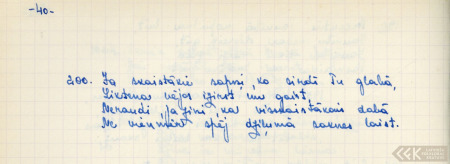 -40-
200. Ja skaistākie sapņi, ko sirdī Tu glabā,
Likteņa vējos izirst un gaist,
Neraudi, ja zini, ka visskaistākais dabā
Ne vienmēr spēj dziļumā saknes laist.